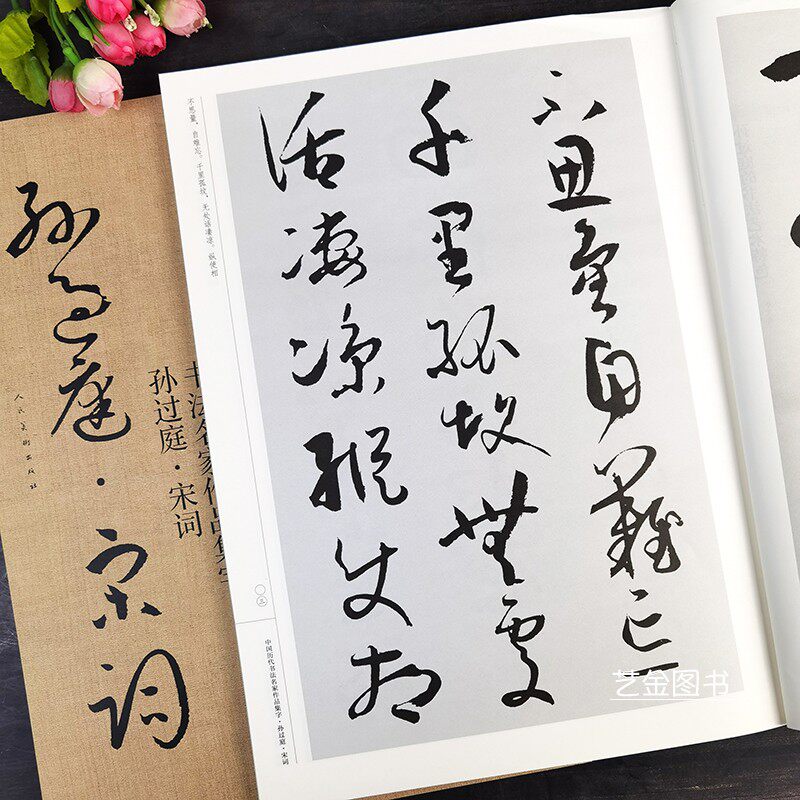 不思量自難忘
千里孤墳無處
話凄涼縱使相
不思量，自难忘。千里孤坟，无处话凄凉。纵使相
〇三
中国历代书法名家作品集字·孙过庭·宋词
孫過庭·宋詞
书法名家作品集字
孙过庭·宋词
人民美術出版社
艺金图书